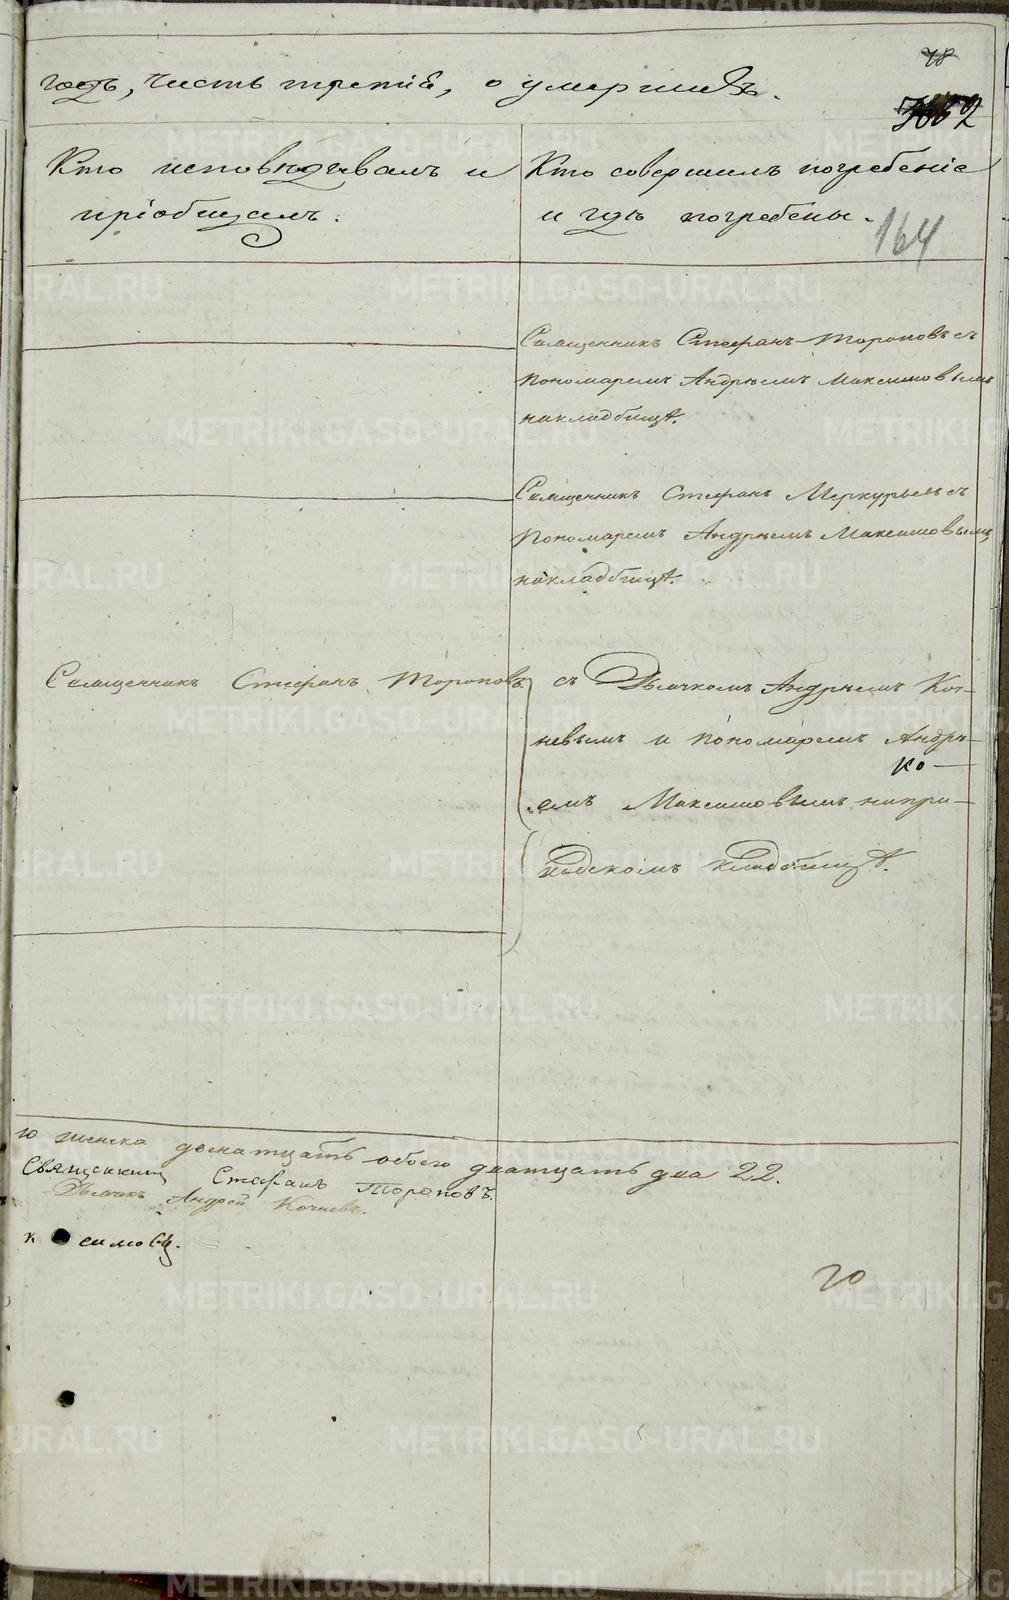 годъ, часть третія, о умершихъ.
78
162
Кто исповѣдывалъ и
пріобщалъ.
Кто совершилъ погребеніе
и гдѣ погребены.
164
Священникъ Стефанъ Тороповъ съ
пономаремъ Андрѣемъ Максимовымъ
на кладбищѣ.
Священникъ Стефанъ Меркурьевъ съ
пономаремъ Андрѣемъ Максимовымъ
на кладбищѣ.
Священникъ Стефанъ Тороповъ
съ Дьячкомъ Андрѣемъ Коч-
невымъ и пономаремъ Андрѣ-
емъ Максимовымъ на при-
ко-
дскомъ кладбищѣ.
го женска двенатцать обоего дватцать два 22.
Священникъ Стефанъ Тороповъ.
Дьячикъ Андрей Кочневъ.
симовъ.
20
METRIKI.GASO-URAL.RU